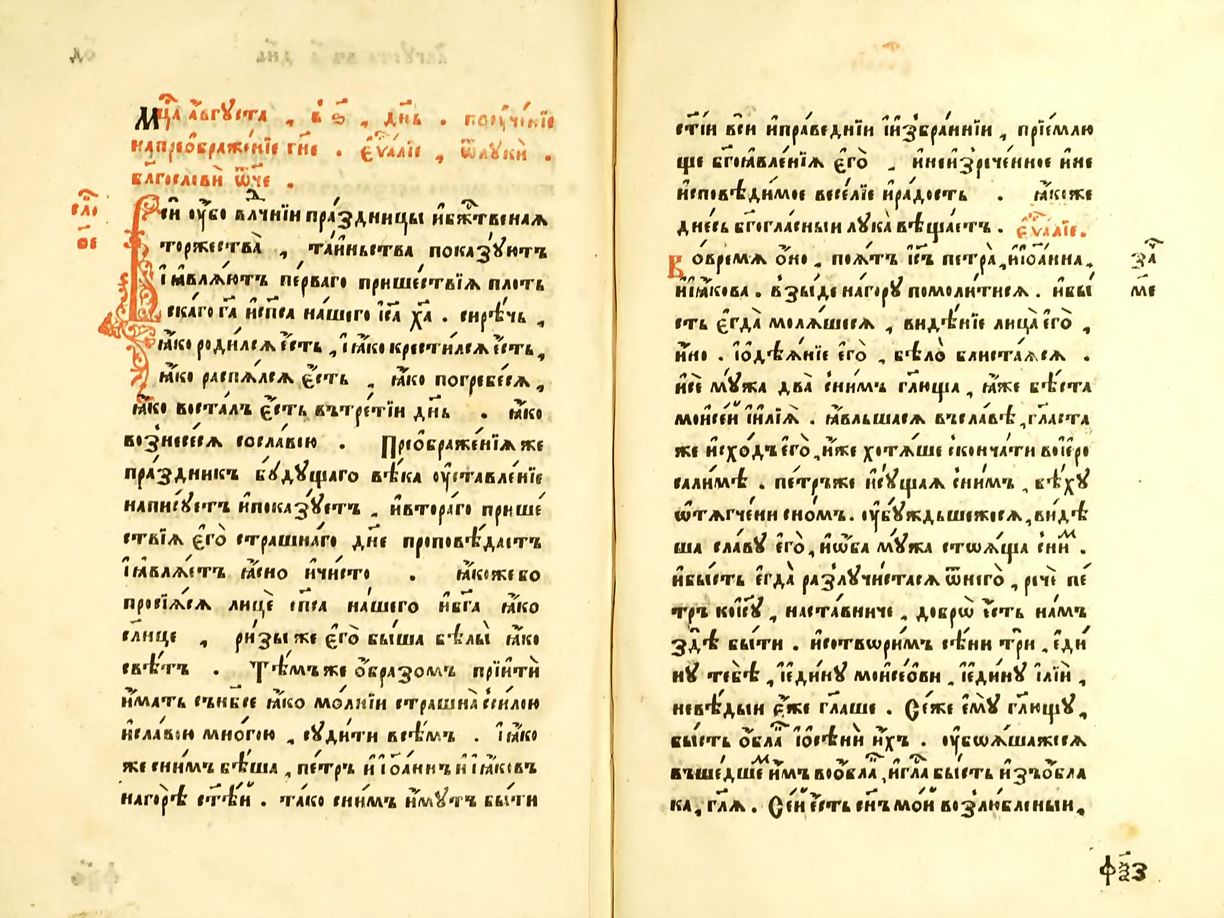 Мц҃а а҆́вгꙋста , в̾ ѕ҃ , дн҃ь . поꙋче́нїе
напреѡбраже́нїе гн҃е . є҆ѵⷢ҇алїе , ѿлꙋкѝ .
бл҃гословѝ ѿч҃е .
сло́
ѻ҃е
Сїѝ ᲂу҆́бо влⷣчнїи пра́здницы и҆бж҃твеная
торжества̀ , та́иньства показꙋ́ютъ
і҆ꙗ҆вля́ютъ пе́рваго прише́ствїѧ плоть
ска́го гд҃а и҆сп҃са на́шего і҆с҃а х҃а . сирѣ́чь ,
ꙗ҆́ко роди́лсѧ є҆́сть , і҆ꙗ҆́ко крести́лсѧ є҆́сть ,
ꙗ҆́ко распѧ́лсѧ є҆́сть , ꙗ҆́ко погребе́сѧ ,
ꙗ҆́ко воста́лъ є҆́сть въ тре́тїи дн҃ь . ꙗ҆́ко
вознесе́сѧ сосла́вою . Преѡбраже́нїѧ же
пра́здникъ бꙋ́дꙋщаго вѣ́ка ᲂу҆ставле́нїе
написꙋ́етъ и҆показꙋ́етъ , и҆втора́го прише́
ствїѧ є҆гѡ̀ стра́шнаго днѐ проповѣ́даетъ
і҆ꙗ҆вля́етъ ꙗ҆́сно и҆чи́сто . ꙗ҆́коже бо
просїѧ́сѧ лицѐ сп҃са на́шего и҆бг҃а ꙗ҆́ко
сл҃нце , ри́зы же є҆гѡ̀ бы́ша бѣлы̀ ꙗ҆́ко
свѣ́тъ . Тѣ́мъже о҆́бразомъ прїитѝ
и҆́мать съ нб҃се ꙗ҆́ко мо́лнїи страшна̀ ссилою
и҆сла́вою мно́гою , сꙋди́ти всѣ́мъ . і҆ꙗ҆́ко
же сни́мъ бѣ́ша , пе́тръ и҆ і҆ѡа́ннъ и҆ і҆ꙗ́ковъ
нагорѣ̀ ст҃ѣ́й . та́ко сни́мъ и҆́мꙋтъ бы́ти
ст҃і́и всѝ и҆пра́веднїи и҆и҆збра́ннїи , прїе́млю
ще бг҃оꙗвле́нїѧ є҆гѡ̀ . и҆неи҆зрече́нное и҆не
и҆сповѣ́димое весе́лїе и҆ра́дость . ꙗ҆́коже
дне́сь бг҃огла́сныи лꙋка̀ вѣща́етъ . є҆ѵⷢ҇алїе .
Во́времѧ ѻ҆́но , поѧ́тъ і҆с҃ъ петра̀ , и҆і҆ѡа́нна ,
и҆і҆ꙗ́кова . взы́де нагорꙋ̀ помоли́тисѧ . и҆бы́
сть є҆гда̀ молѧ́шесѧ , видѣ́нїе лица̀ є҆гѡ̀ ,
и҆́но . і҆ѻ҆дѣѧ́нїе є҆гѡ̀ , бѣлѡ̀ блиста́ѧсѧ .
и҆сѐ мꙋ́жа два̀ сни́мъ гл҃юща , ꙗ҆́же бѣ́ста
моисе́й и҆и҆лїѧ̀ . ꙗ҆́вльшасѧ въ сла́вѣ , гл҃аста
же и҆схо́дъ є҆гѡ̀ , и҆́же хотѧ́ше сконча́ти во і҆еро
сали́мѣ . пе́тръже и҆сꙋ́щаѧ сни́мъ , бѣ́хꙋ
ѡ҆тѧгче́ни сно́мъ . ᲂу҆бꙋ́ждьшежесѧ , ви́дѣ
ша сла́вꙋ є҆гѡ̀ , и҆ѻ́ба мꙋ́жа стоѧ́ща сниⷨ .
и҆бы́сть є҆гда̀ разлꙋчи́стасѧ ѿнегѡ̀ , речѐ пе́
тръ ко і҆с҃ꙋ , наста́вниче , добрѡ̀ є҆́сть на́мъ
здѣ̀ бы́ти . и҆сотвори́мъ сѣ́ни трѝ , є҆ди́
нꙋ тебѣ̀ , і҆є҆ди́нꙋ моисе́ови , і҆є҆ди́нꙋ і҆лїѝ ,
невѣ́дыи є҆́же гл҃аше . Се́же є҆мꙋ̀ гл҃ющꙋ ,
бы́сть ѻ҆́блаⷦ҇ і҆ѡсѣнѝ и҆́хъ . ᲂу҆боѧ́шажесѧ
въше́дшеⷨ и҆́мъ во ѻ҆́блаⷦ҇ , и҆гла́съ бы́сть и҆зъ ѻ҆́бла
ка , гл҃ѧ . Се́й є҆́сть сн҃ъ мо́й возлю́бленыи ,
за
ме
ф҃ѯз